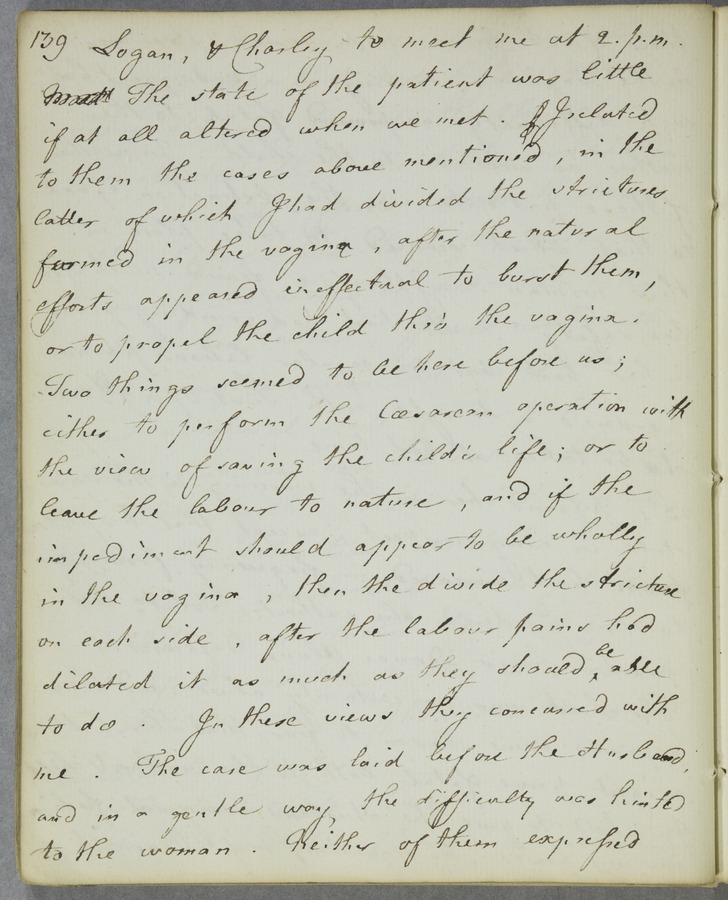 139 Logan, & Charley to meet me at 2. p.m.
The state of the patient was little
if at all altered when we met. I related
to them the cases above mentioned, in the
latter of which I had divided the strictures
formed in the vagina, after the natural
efforts appeared ineffectual to burst them,
or to propel the child thro' the vagina.
Two things seemed to be here before us;
either to perform the Cæsarean operation with
the view of saving the child's life; or to
leave the labour to nature, and if the
impediment should appear to be wholly
in the vagina, then the divide the stricture
on each side, after the labour pains had
dilated it as much as they should be able
to do. In these views they concurred with
me. The case was laid before the Husband,
and in a gentle way, the difficulty was hinted
to the woman. Neither of them expressed